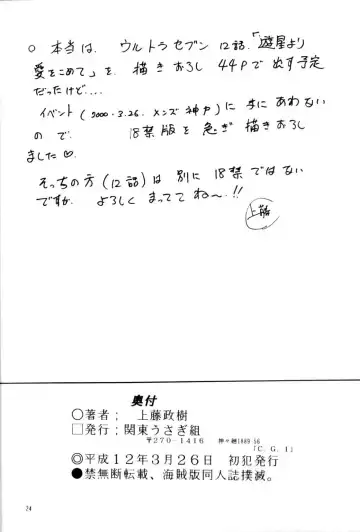 ○ 本当は、ウルトラセブン 12話、「遊星より
愛をこめて」を、描きおろし 44Pで出す予定
だったけど....
イベント(2000.3.26. メンズ神戸)に まにあわない
ので、 18禁版を急ぎ描きおろし
ました♡
そっちの方(12話)は 別に 18禁ではない
ですが よろしく まっててね〜!!
上藤
奥付
○著者: 上藤政樹
□発行: 関東うさぎ組
〒270-1416 神々廻1889-56
「C.G.1」
◎平成12年3月26日 初犯発行
●禁無断転載、海賊版同人誌撲滅。
24